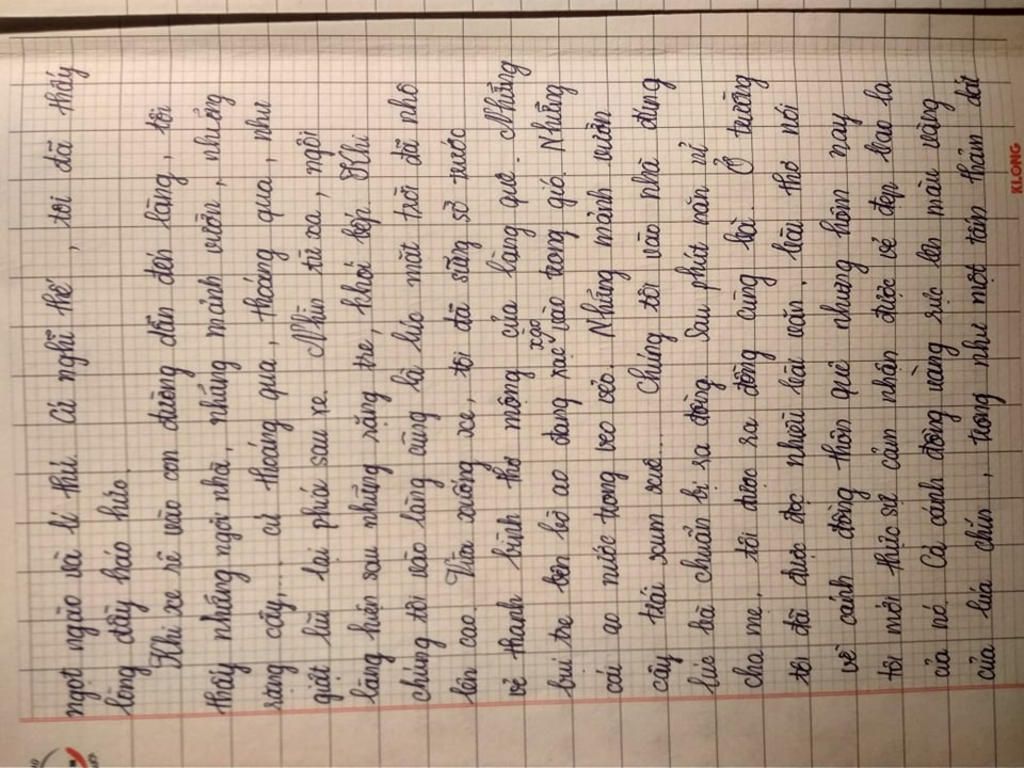 ngọt ngào và lí thú. Cả nghĩ thế, tôi đã thấy
lòng đầy háo hức.
Khi xe rẽ vào con đường dẫn đến làng, tôi
thấy những ngôi nhà, những mảnh vườn, những
rặng cây,... cứ thoáng qua, thoáng qua, như
giật lùi lại phía sau xe. Nhìn từ xa, ngôi
làng hiện sau những rặng tre, khói bếp. Khi
chúng tôi vào làng cũng là lúc mặt trời đã nhô
lên cao. Vừa xuống xe, tôi đã sững sờ trước
vẻ thanh bình thơ mộng của làng quê. Những
bụi tre bên bờ ao đang xạc xào vào trong gió. Những
cái ao nước trong veo veo. Những mảnh vườn
cây trái xum xuê... Chúng tôi vào nhà đúng
lúc bà chuẩn bị ra đồng. Sau phút năn nỉ
cha mẹ, tôi được ra đồng cùng bà. Ở trường
tôi đã được đọc nhiều bài văn, bài thơ nói
về cánh đồng thôn quê nhưng hôm nay
tôi mới thực sự cảm nhận được vẻ đẹp bao la
của nó. Cả cánh đồng vàng rực lên màu vàng
của lúa chín, trong như một tấm thảm dát
KLONG